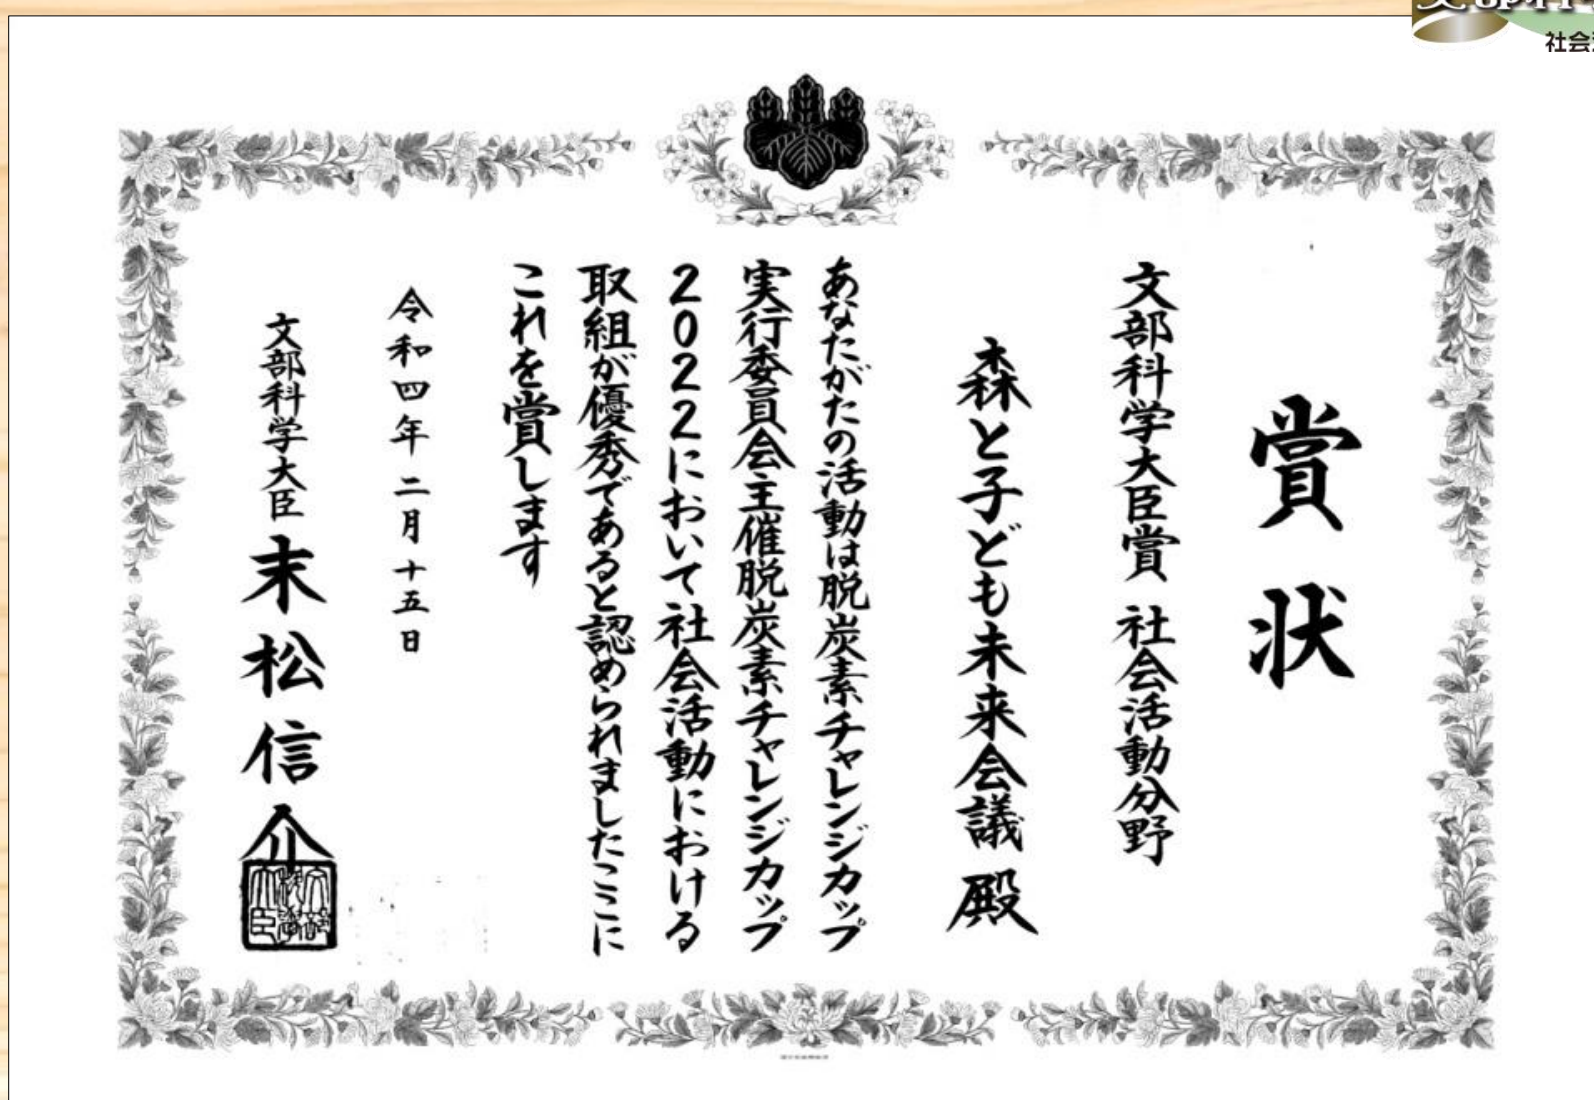 賞状
文部科学大臣賞 社会活動分野
森と子ども未来会議 殿
あなたがたの活動は脱炭素チャレンジカップ
実行委員会主催脱炭素チャレンジカップ
2022において社会活動における
取組が優秀であると認められましたここに
これを賞します
令和四年二月十五日
文部科学大臣 末松信介
文部科学大臣
社会